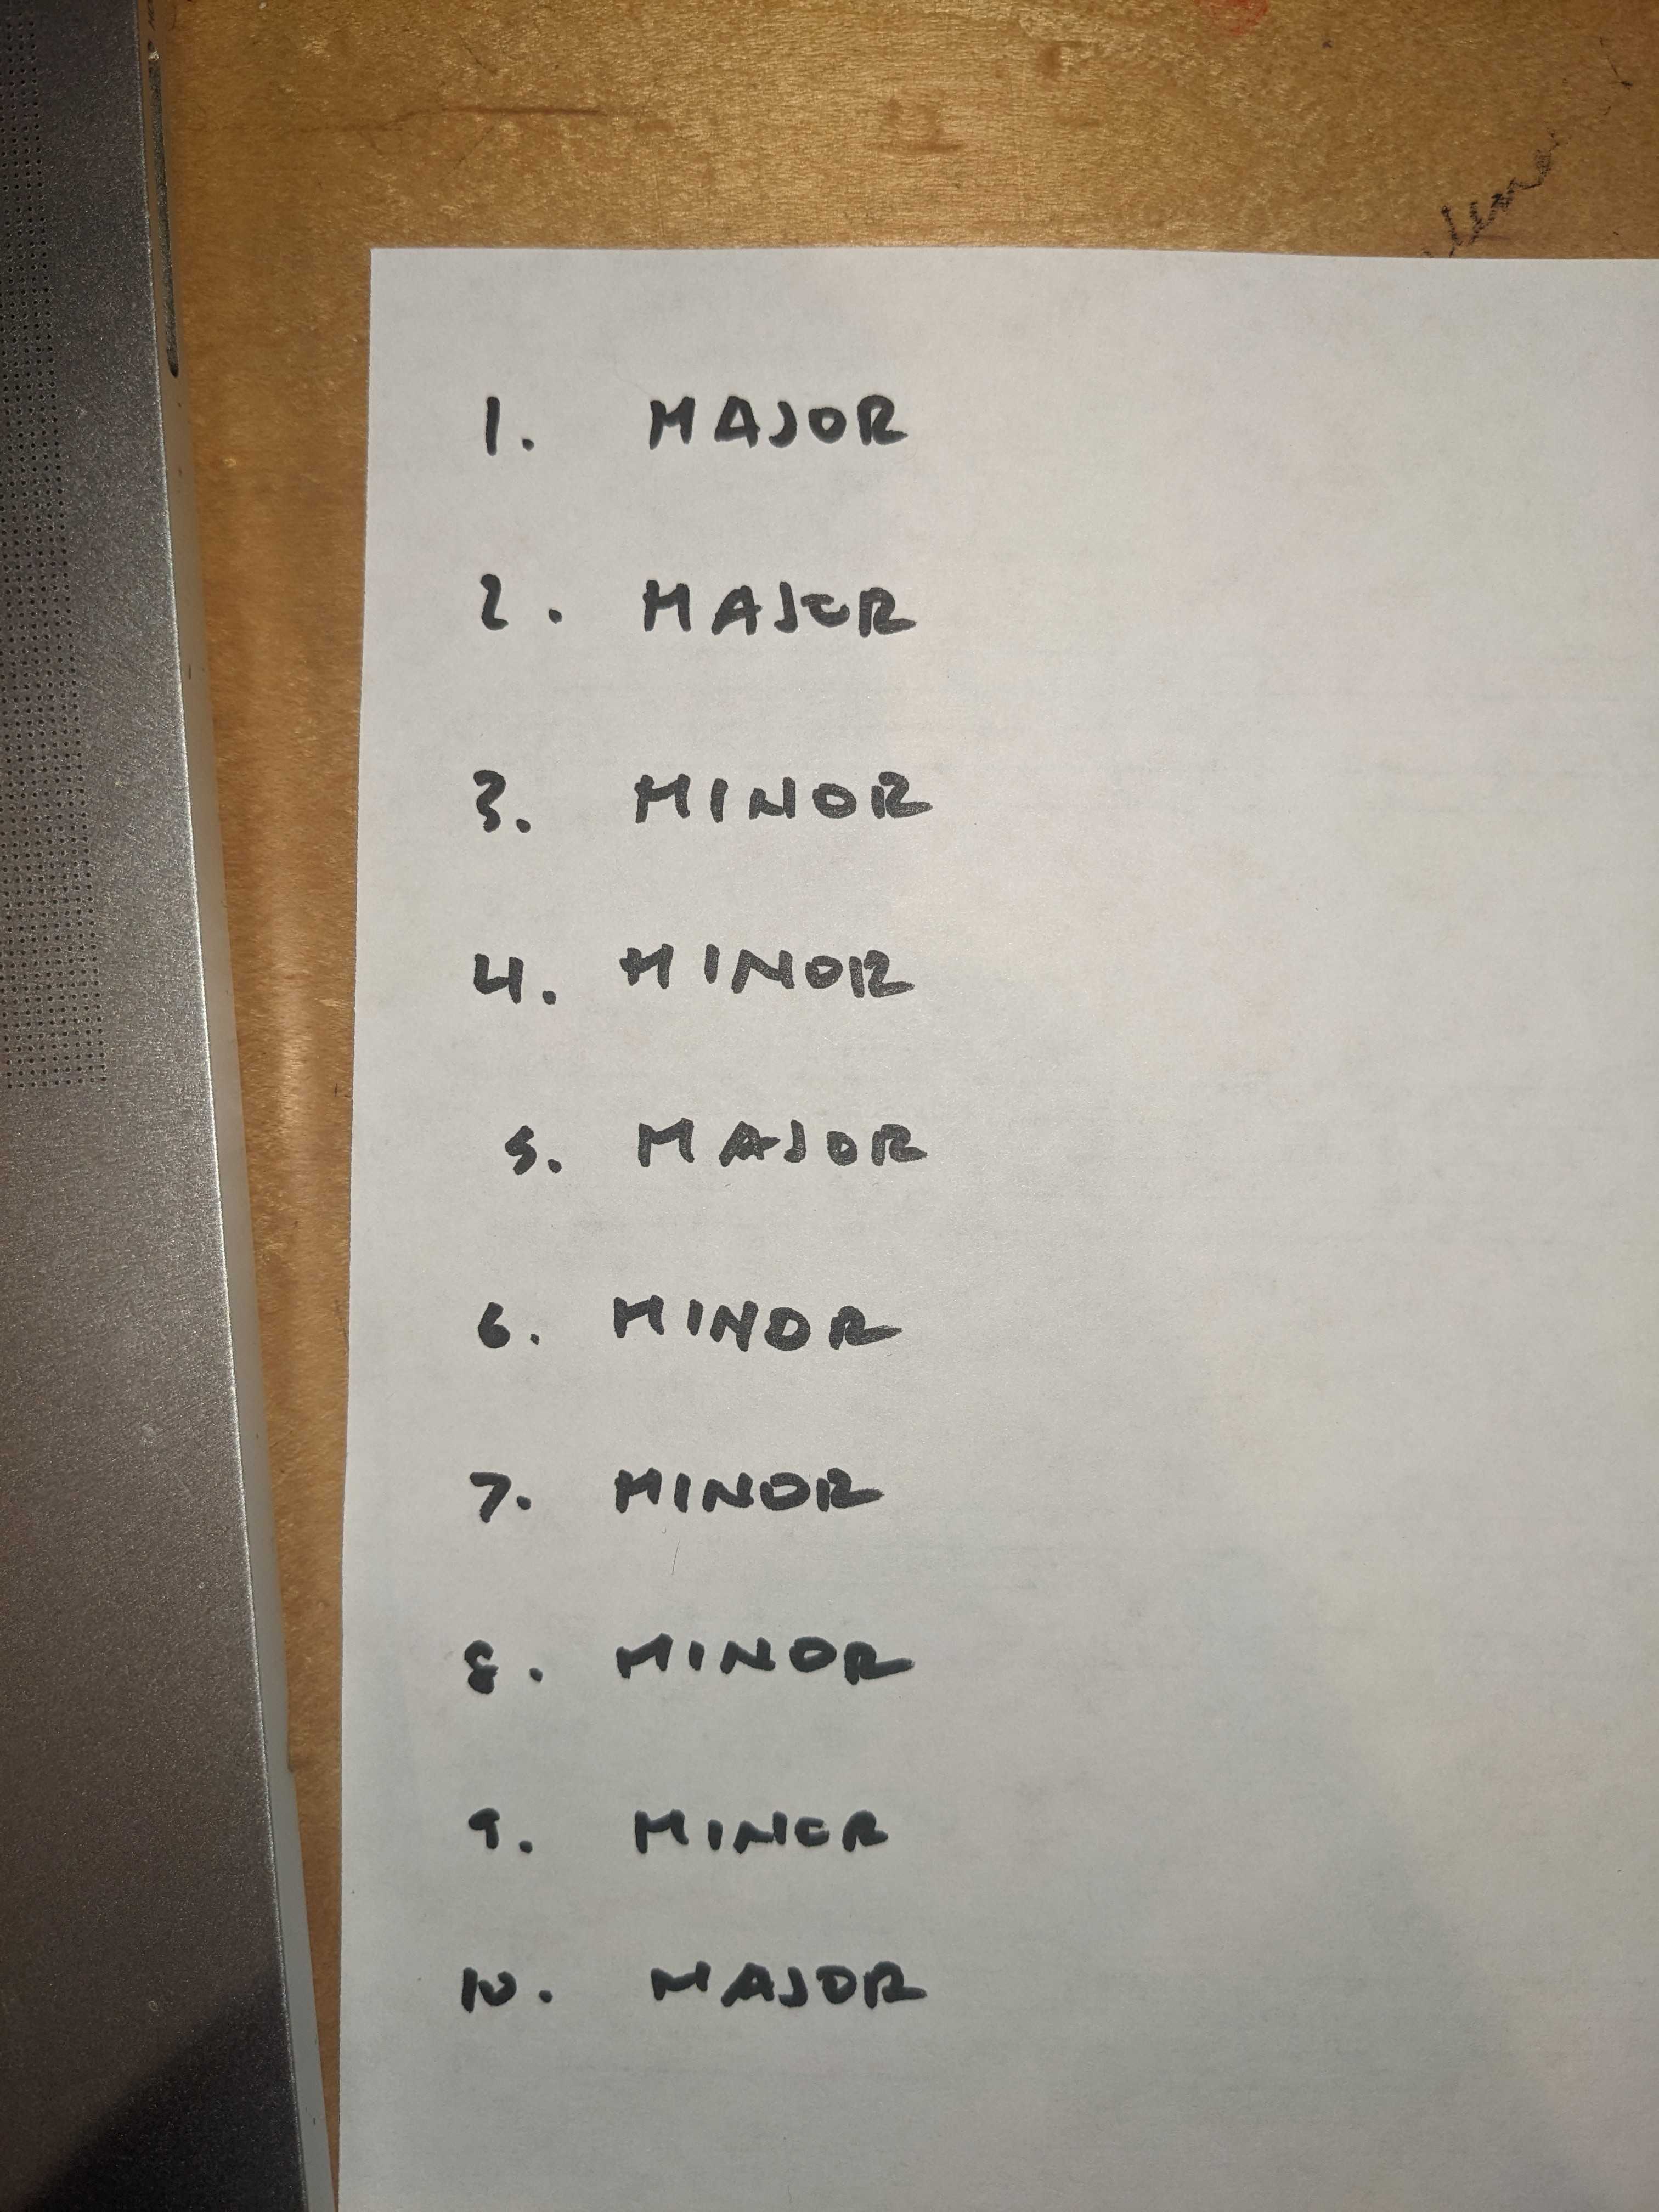 1. MAJOR
2. MAJOR
3. MINOR
4. MINOR
5. MAJOR
6. MINOR
7. MINOR
8. MINOR
9. MINOR
10. MAJOR